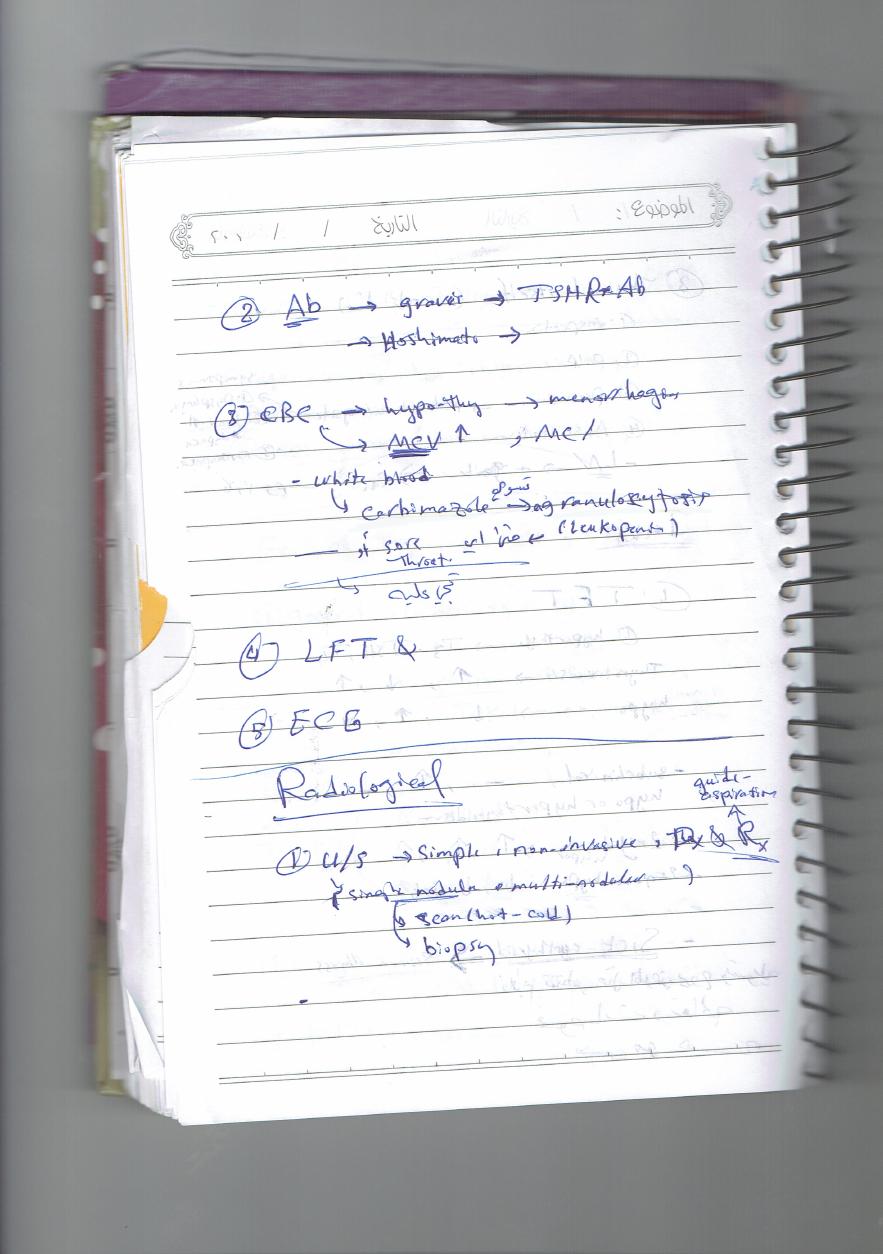 الموضوع: التاريخ / / ٢٠٠
② Ab → graves → TSHR Ab
→ Hoshimato →
③ CBC → hypothy → menorrhagea
→ MCV ↑ , MC/
- white blood
carbimazole → agranulocytosis
(Leukopenia) ← sore أو
throat
④ LFT &
⑤ ECG
Radiological
guide-
aspiration
① U/S → Simple, non-invasive, Dx & Rx
single nodule multi-nodular
scan (hot-cold)
biopsy